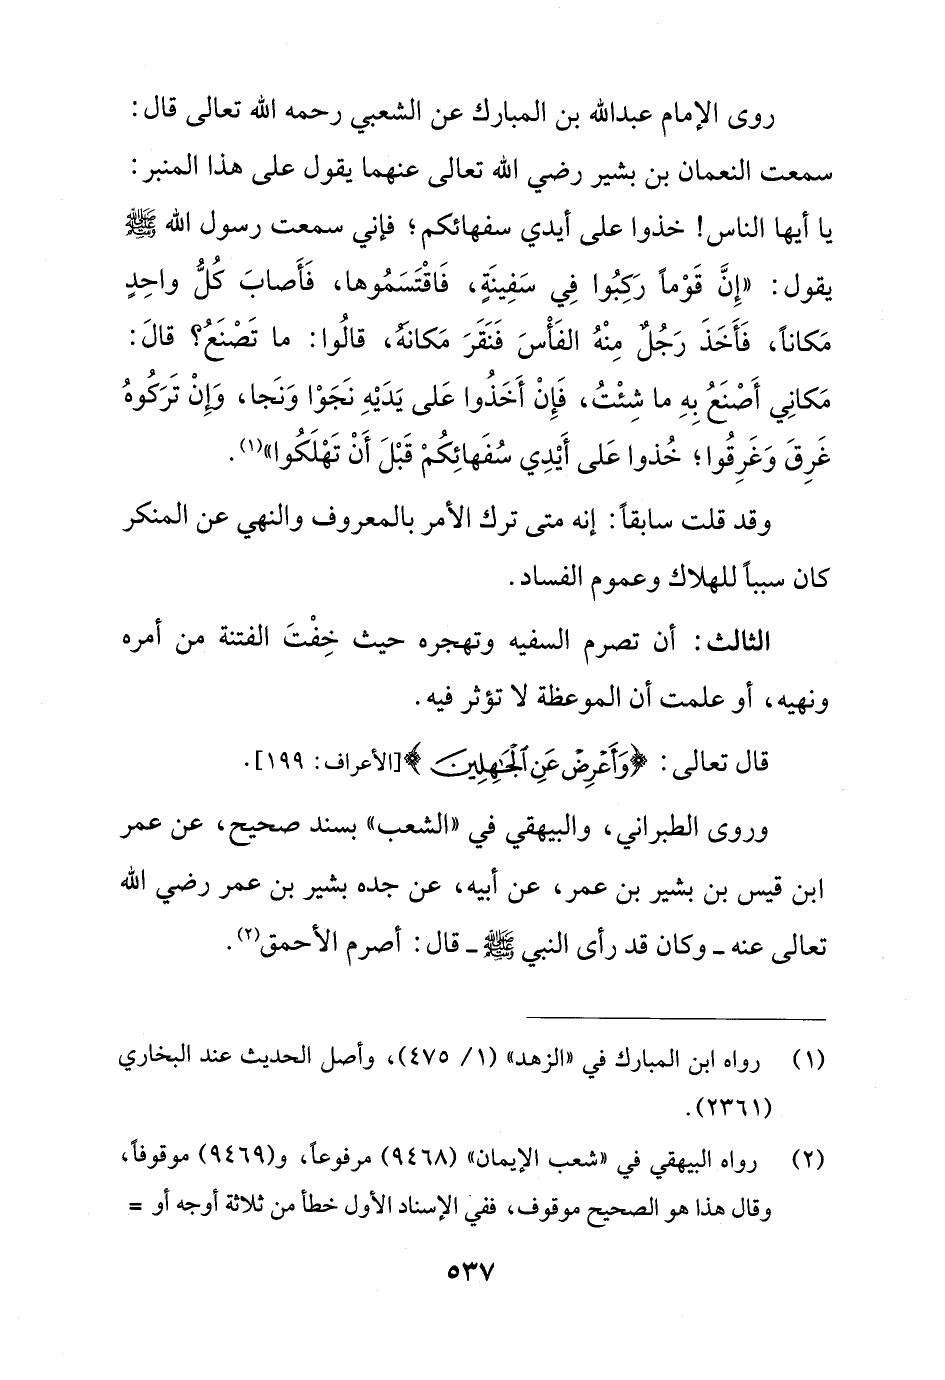 روى الإمام عبدالله بن المبارك عن الشعبي رحمه الله تعالى قال:
سمعت النعمان بن بشير رضي الله تعالى عنهما يقول على هذا المنبر:
يا أيها الناس! خذوا على أيدي سفهائكم؛ فإني سمعت رسول الله ﷺ
يقول: «إِنَّ قَوْماً رَكِبُوا فِي سَفِينَةٍ، فَاقْتَسَمُوها، فَأَصابَ كُلُّ واحِدٍ
مَكاناً، فَأَخَذَ رَجُلٌ مِنْهُ الفَأْسَ فَنَقَرَ مَكانَهُ، قالُوا: ما تَصْنَعُ؟ قالَ:
مَكانِي أَصْنَعُ بِهِ ما شِئْتُ، فَإِنْ أَخَذُوا عَلى يَدَيْهِ نَجَوْا وَنَجا، وَإِنْ تَرَكُوهُ
غَرِقَ وَغَرِقُوا؛ خُذوا عَلى أَيْدِي سُفَهائِكُمْ قَبْلَ أَنْ تَهْلَكُوا»(١).
وقد قلت سابقاً: إنه متى ترك الأمر بالمعروف والنهي عن المنكر
كان سبباً للهلاك وعموم الفساد.
الثالث: أن تصرم السفيه وتهجره حيث خِفْتَ الفتنة من أمره
ونهيه، أو علمت أن الموعظة لا تؤثر فيه.
قال تعالى: ﴿وَأَعْرِضْ عَنِ ٱلْجَٰهِلِينَ﴾[الأعراف: ١٩٩].
وروى الطبراني، والبيهقي في «الشعب» بسند صحيح، عن عمر
ابن قيس بن بشير بن عمر، عن أبيه، عن جده بشير بن عمر رضي الله
تعالى عنه ـ وكان قد رأى النبي ﷺ ـ قال: أصرم الأحمق(٢).
(١) رواه ابن المبارك في «الزهد» (١/ ٤٧٥)، وأصل الحديث عند البخاري
(٢٣٦١).
(٢) رواه البيهقي في «شعب الإيمان» (٩٤٦٨) مرفوعاً، و(٩٤٦٩) موقوفاً،
وقال هذا هو الصحيح موقوف، ففي الإسناد الأول خطأ من ثلاثة أوجه أو =
٥٣٧